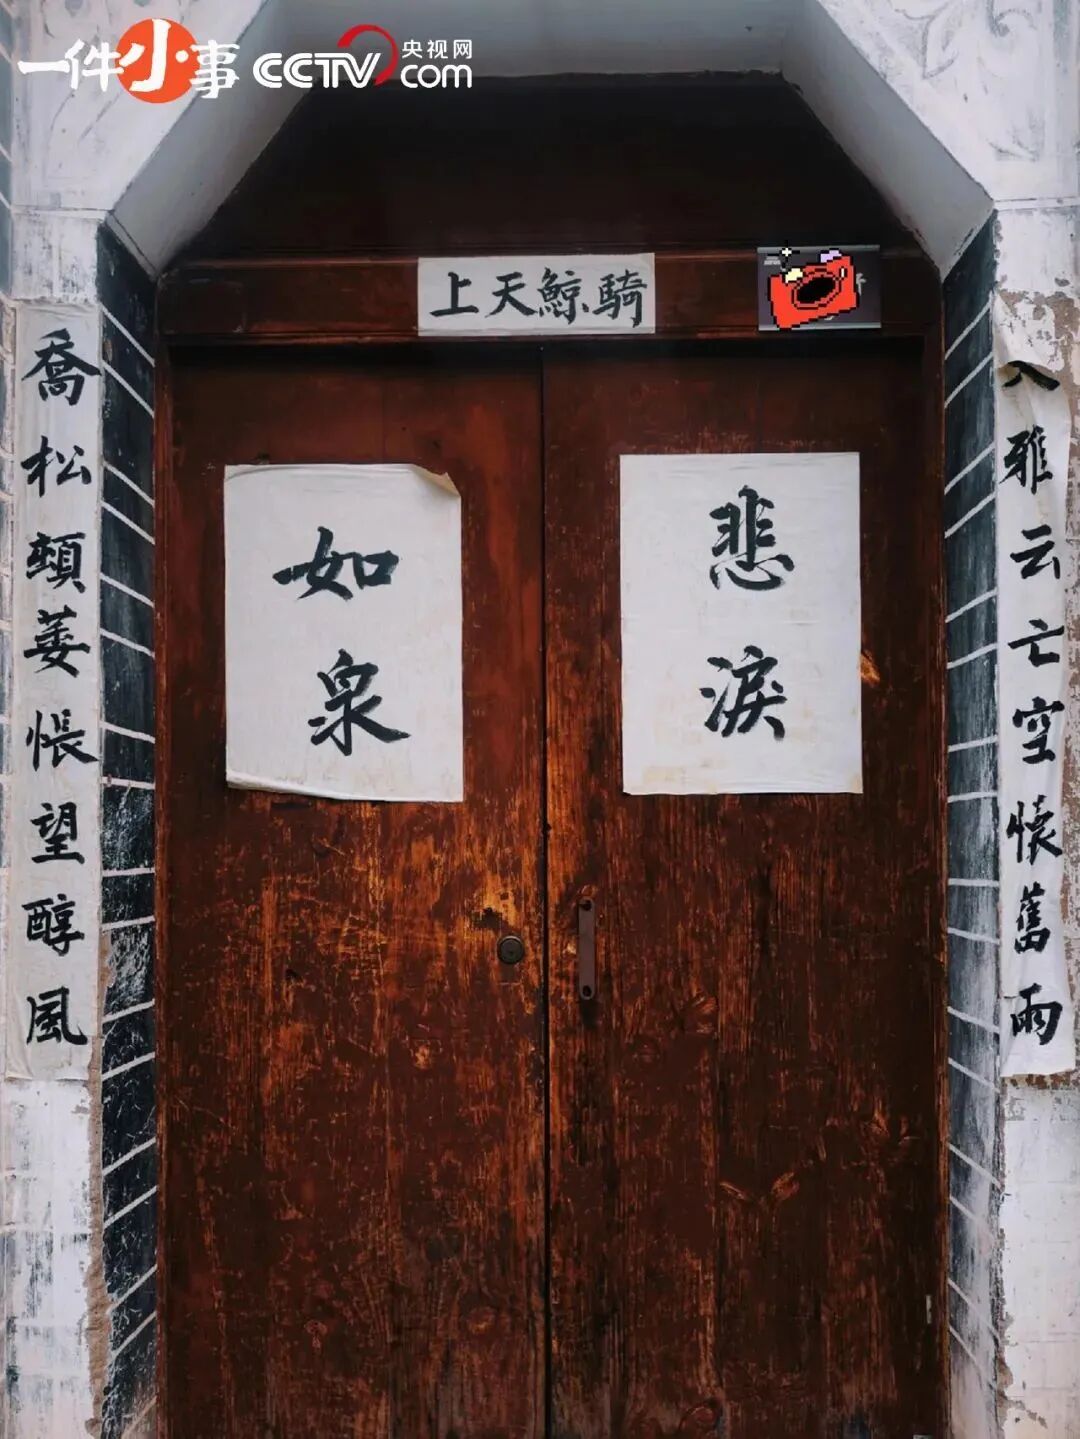 一件小事 CCTV.com 央视网
騎鯨天上
雅云亡空懷舊雨
悲淚
如泉
喬松頓萎悵望醇風